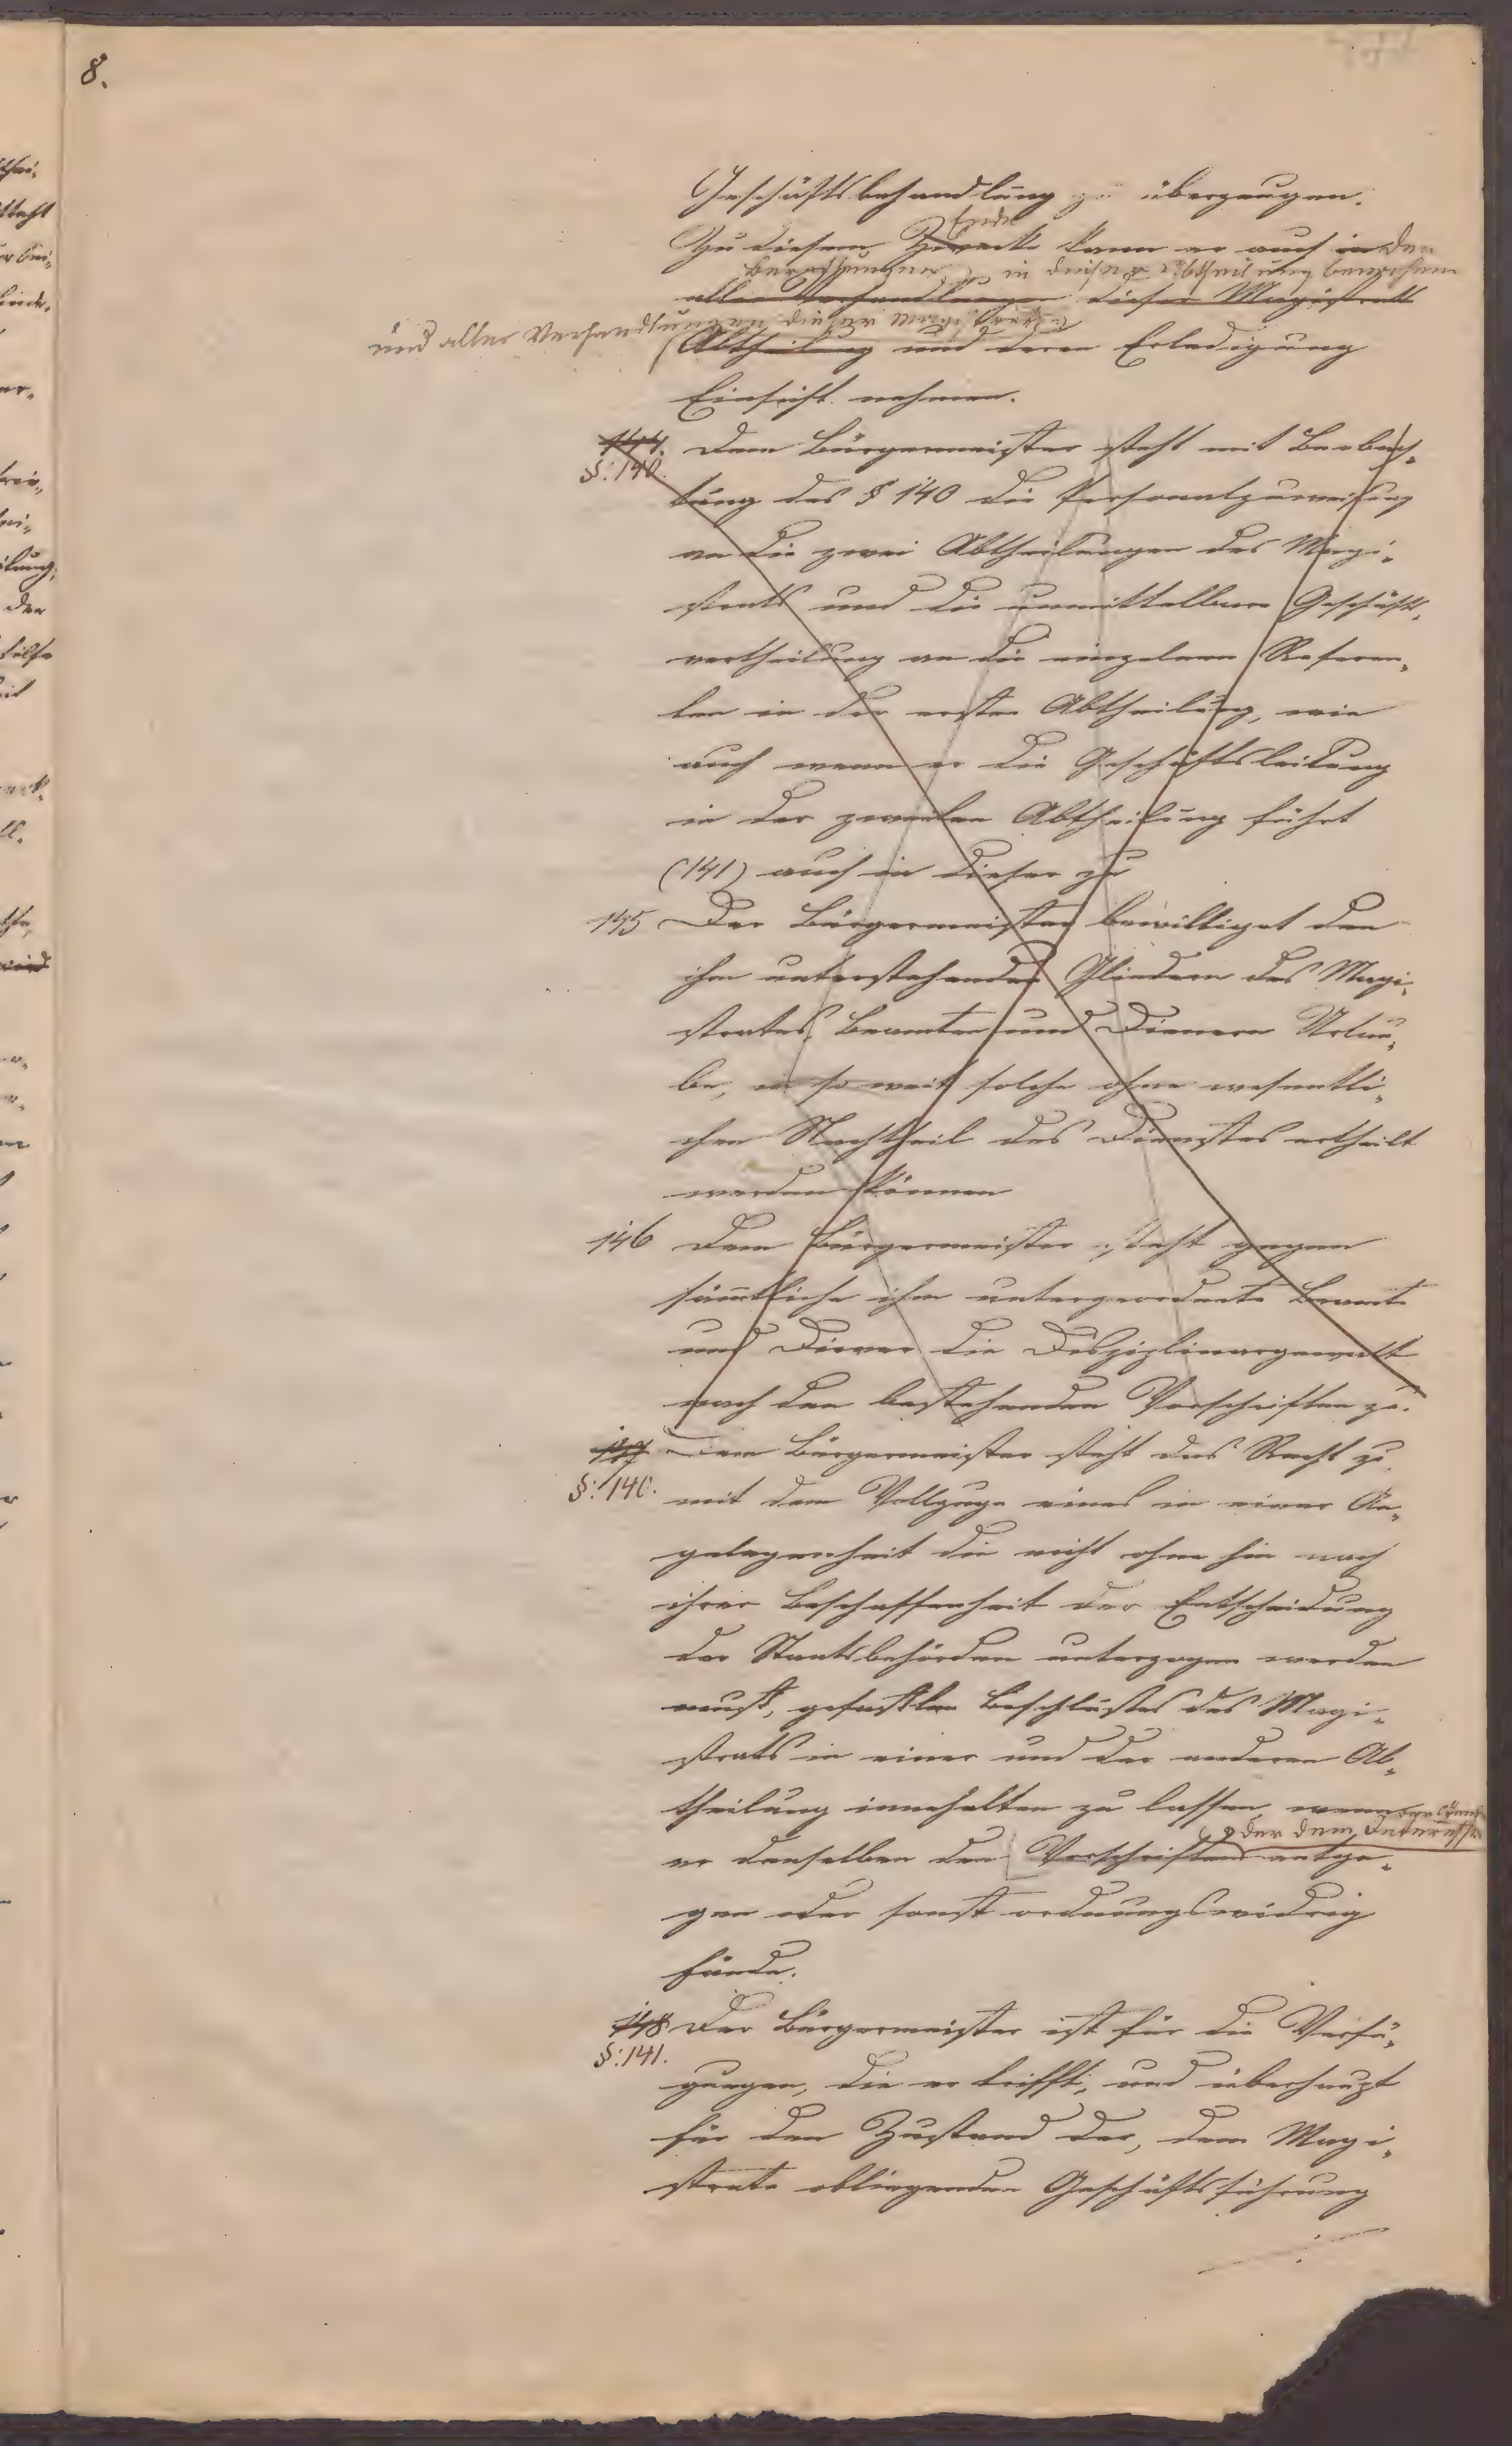 8.
Geschäftsbehandlung zu überzeugen.
Ende
Zu diesem Zwecke kann er auch in den
Berathungen in dieser Abtheilung beiwohnen
allen Verhandlungen dieser Magistrats
und aller Verhandlungen dieser Magistrats
Abtheilung und deren Erledigung
Einsicht nehmen.
144. Dem Bürgermeister steht mit Beobach-
§: 140.
tung des § 140 die Personalzuweisung
an die zwei Abtheilungen des Magi-
strats und die unmittelbare Geschäfts-
vertheilung an die einzelnen Referen-
ten in der ersten Abtheilung, wie
auch wenn er die Geschäftsleitung
in der zweiten Abtheilung führt
(141) auch in dieser zu
145 Der Bürgermeister bewilligt den
ihm unterstehenden Gliedern des Magi-
strates, Beamten und Dienern Urlau-
be, in so weit solche ohne wesentli-
chen Nachtheil des Dienstes ertheilt
werden können
146 Dem Bürgermeister steht gegen
sämtliche ihm untergeordnete Beamte
und Diener die Disziplinargewalt
nach den bestehenden Vorschriften zu.
147 Dem Bürgermeister steht das Recht zu
§: 140.
mit dem Vollzuge eines in einer An-
gelegenheit die nicht ohne hin nach
ihrer Beschaffenheit der Entscheidung
der Staatsbehörden unterzogen werden
muß, gefaßten Beschlußes des Magi-
strats in einer und der anderen Ab-
theilung innehalten zu lassen, wenn
oder dem Interesse
er denselben den Vorschriften entge-
gen oder sonst ordnungswidrig
fände.
148 Der Bürgermeister ist für die Verfü-
§: 141.
gungen, die er trifft, und überhaupt
für den Zustand der, dem Magi-
strate obliegenden Geschäftsführung